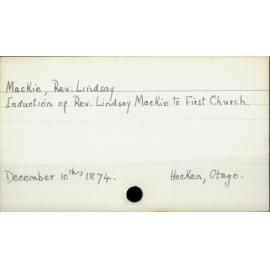 Mackie, Rev. Lindsay
Induction of Rev. Lindsay Mackie to First Church.
December 10th, 1874.
Hocken, Otago.